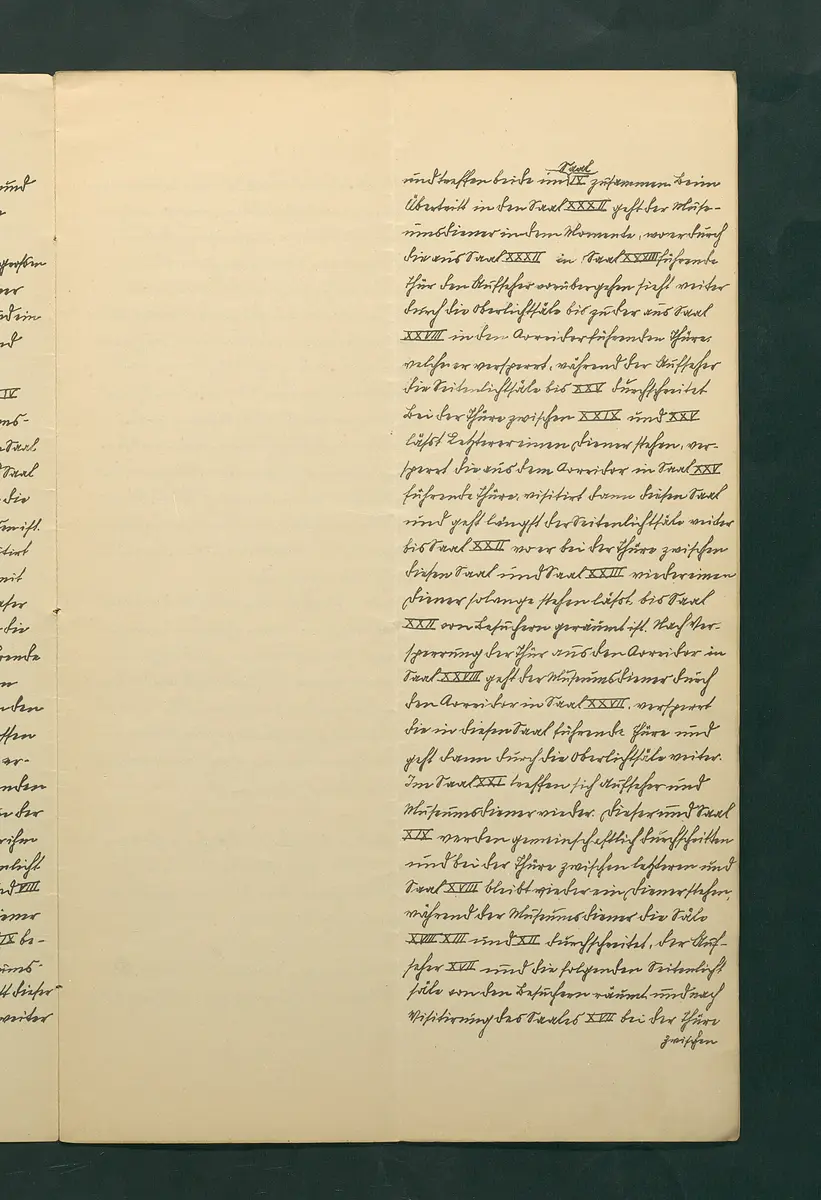 und
großen
ner
und
IV
ms-
Saal
Saal
die
ist.
tirt
mit
die
den
er-
nden
der
ihm
nlicht
VIII
iener
IX be-
ums-
tt dieser
weiter
Saal
und treffen beide im IV zusammen. Beim
Übertritt in den Saal XXXII geht der Muse-
umsdiener in dem Momente, wo er durch
die aus Saal XXXII in Saal XXVIII führende
Thür den Aufseher vorübergehen sieht weiter
durch die Oberlichtsäle bis zu der aus Saal
XXVIII in den Corridor führenden Thüre,
welche er versperrt, während der Aufseher
die Seitenlichtsäle bis XXV durchschreitet
Bei der Thüre zwischen XXIX und XXV
läßt Letzterer einen Diener stehen, ver-
sperrt die aus dem Corridor in Saal XXV
führende Thüre, visitirt dann diesen Saal
und geht längst der Seitenlichtsäle weiter
bis Saal XXII wo er bei der Thüre zwischen
diesen Saal und Saal XXIII wieder einen
Diener solange stehen läßt, bis Saal
XXII von Besuchern geräumt ist. Nach Ver-
sperrung der Thür aus den Corridor in
Saal XXVIII geht der Museumsdiener durch
den Corridor in Saal XXVII, versperrt
die in diesen Saal führende Thüre und
geht dann durch die Oberlichtsäle weiter.
Im Saal XXI treffen sich Aufseher und
Museumsdiener wieder. Dieser und Saal
XIX werden gemeinschaftlich durchschritten
und bei der Thüre zwischen letzteren und
Saal XVIII bleibt wieder ein Diener stehen,
während der Museumsdiener die Säle
XVIII XIII und XII durchschreitet, der Auf-
seher XVII und die folgenden Seitenlicht
säle von den Besuchern räumt und nach
Visitirung des Saales XVII bei der Thüre
zwischen